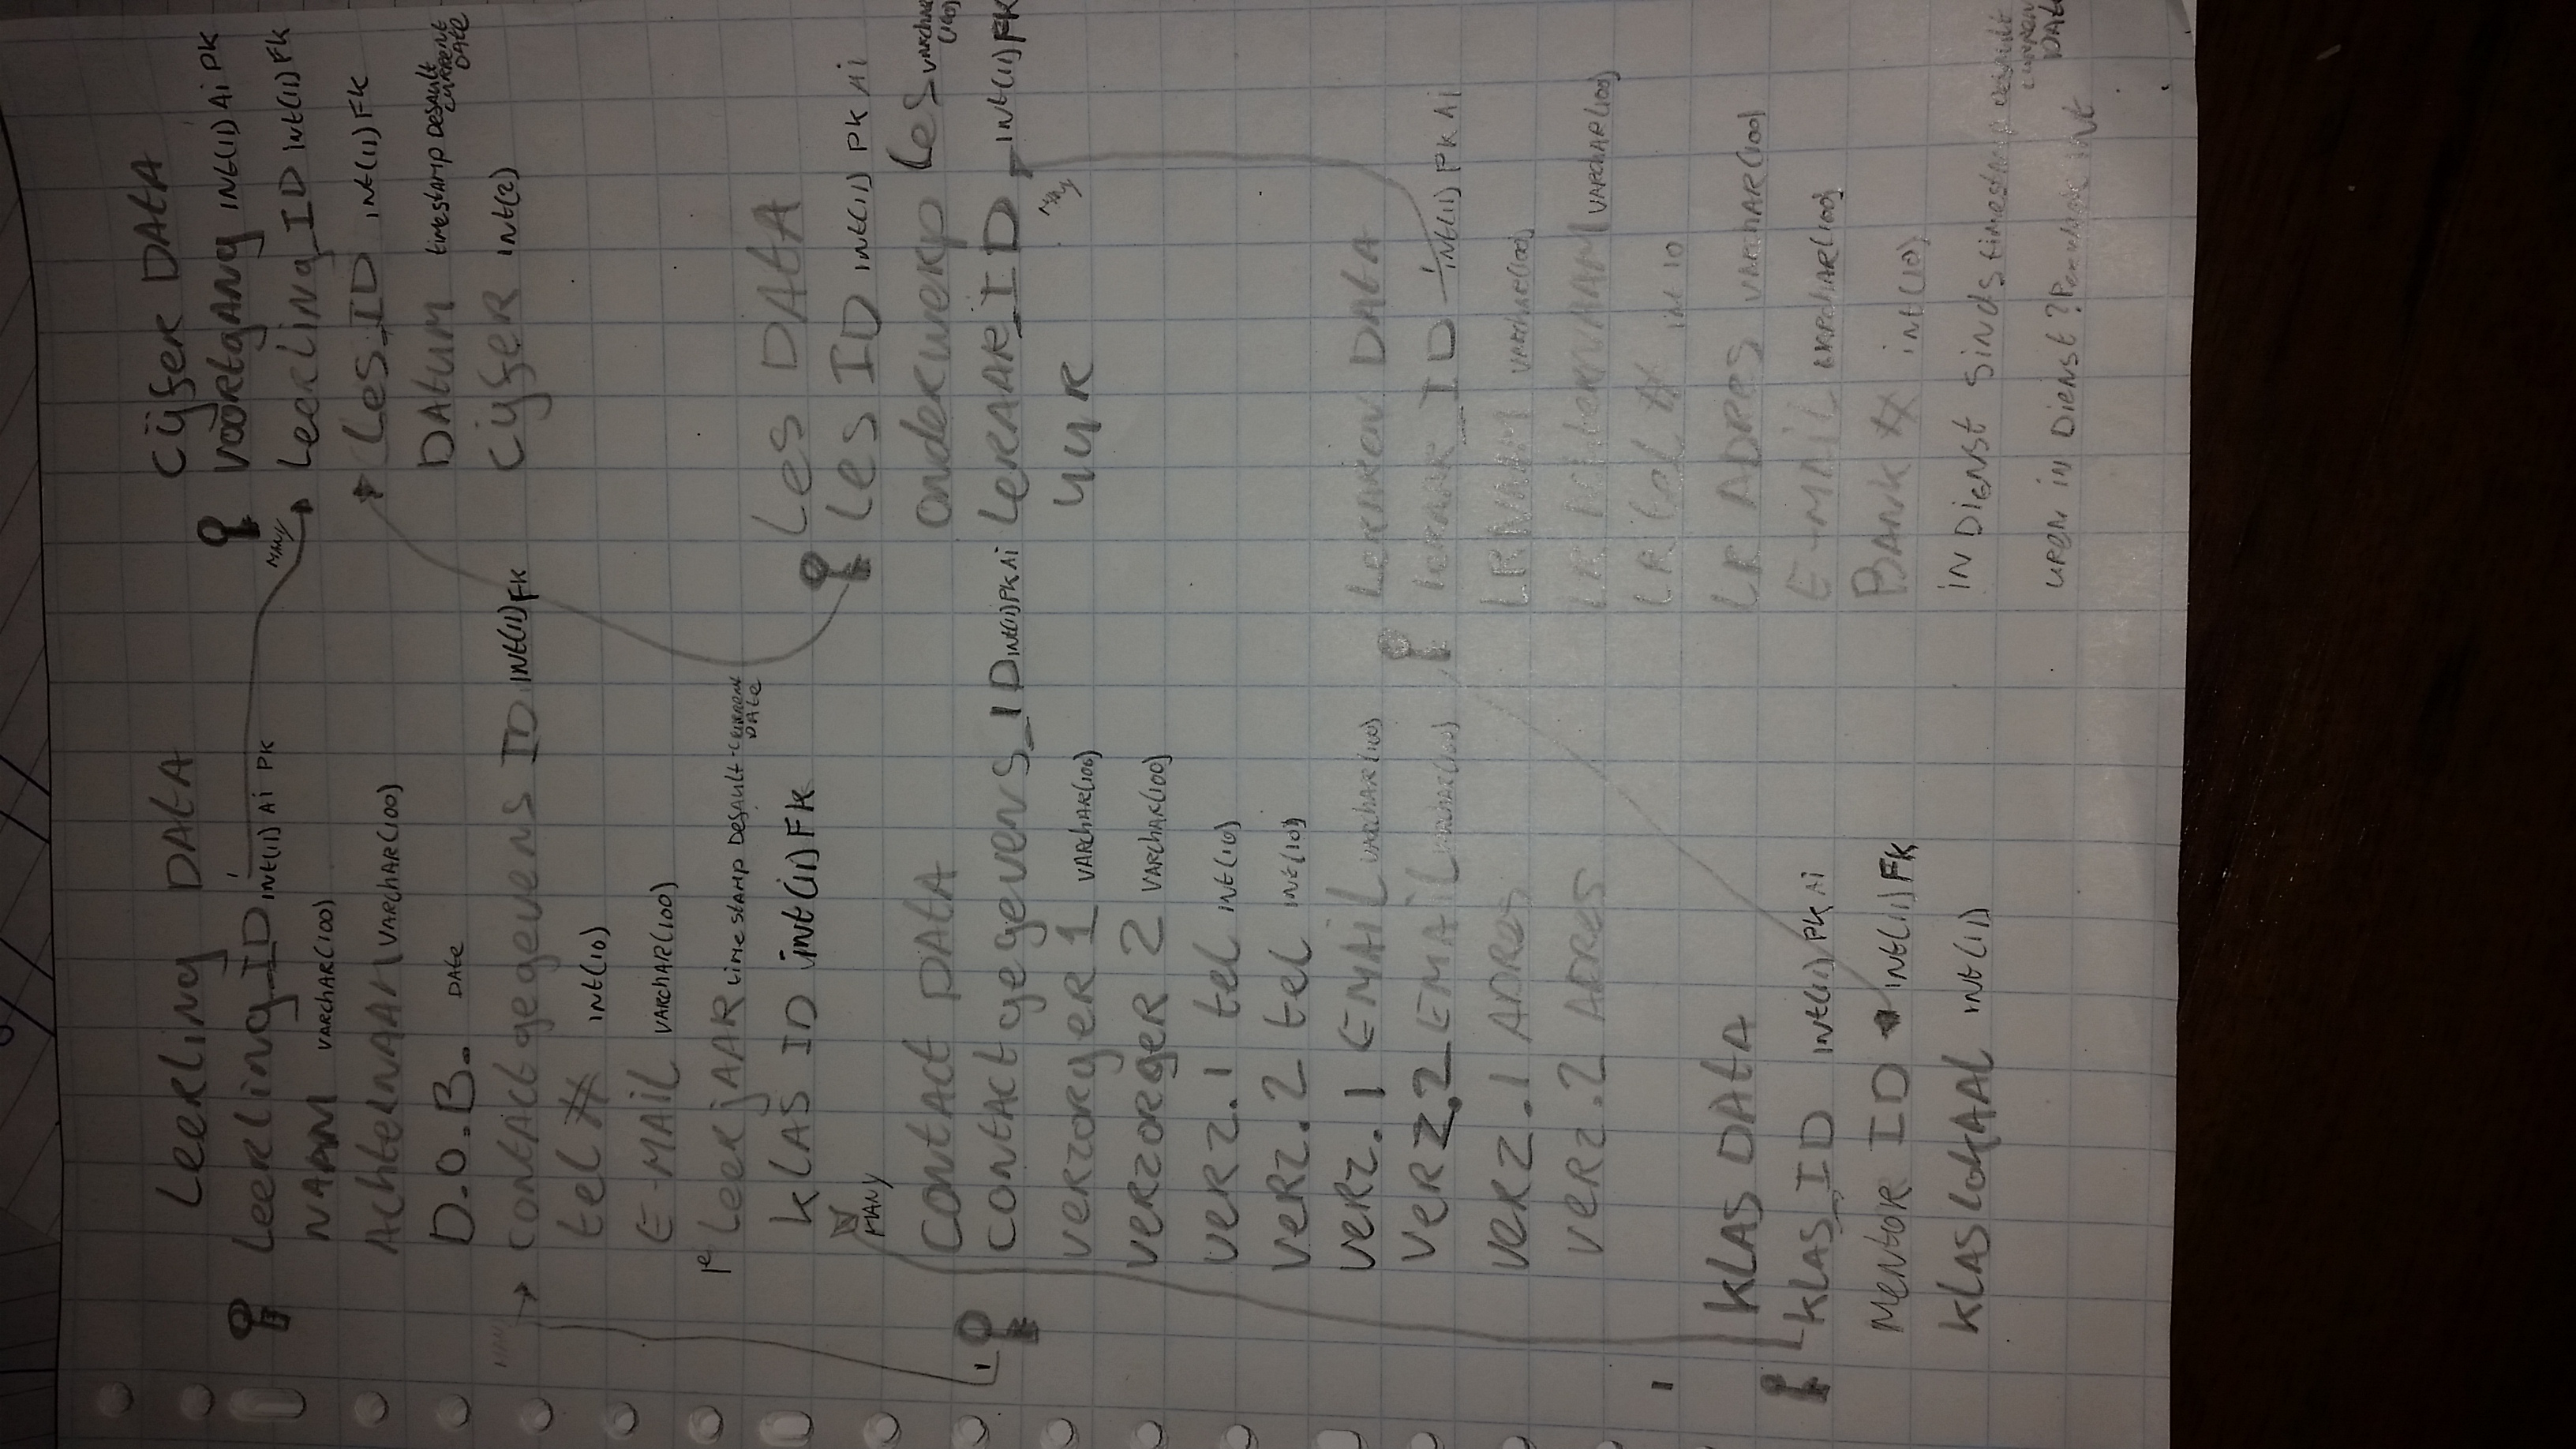 Leerling DATA
Leerling_ID INT(11) Ai PK
1
NAAM VARCHAR(100)
AchterNAAM VARCHAR(100)
D.O.B. DATE
MANY
CONTACTgegevens ID INT(11) FK
tel # INT(10)
E-MAIL VARCHAR(100)
1e LeerjAAR timestamp Default-CURRENT
DATE
KLAS ID INT(11) FK
MANY
CONTACT DATA
1
CONTACTgegevens_ID INT(11) PK Ai
verzorger 1 VARCHAR(100)
verzorger 2 VARCHAR(100)
verz.1 tel INT(10)
verz.2 tel INT(10)
verz.1 EMAIL VARCHAR(100)
verz.2 EMAIL VARCHAR(100)
verz.1 ADRES
verz.2 ADRES
1
KLAS DATA
KLAS_ID INT(11) PK Ai
Mentor ID INT(11) FK
KLASLOKAAL INT(11)
Cijfer DATA
VOORtgANG INT(11) Ai PK
MANY
Leerling_ID INT(11) FK
Les_ID INT(11) FK
DATUM timestamp Default
CURRENT
DATE
Cijfer INT(2)
Les DATA
Les ID INT(11) PK Ai
onderwerp Les VARCHAR
(100)
LerAAR_ID INT(11) FK
MANY
uur
LerAREN DATA
lerAAR_ID 1 INT(11) PK Ai
LR NAAM VARCHAR(100)
LR AchterNAAM VARCHAR(100)
LR tel # INT 10
LR ADRES VARCHAR(100)
E-MAIL VARCHAR(100)
BANK # INT(10)
IN Dienst sinds timestamp Default
CURREN
DATE
uren in Dienst? INT